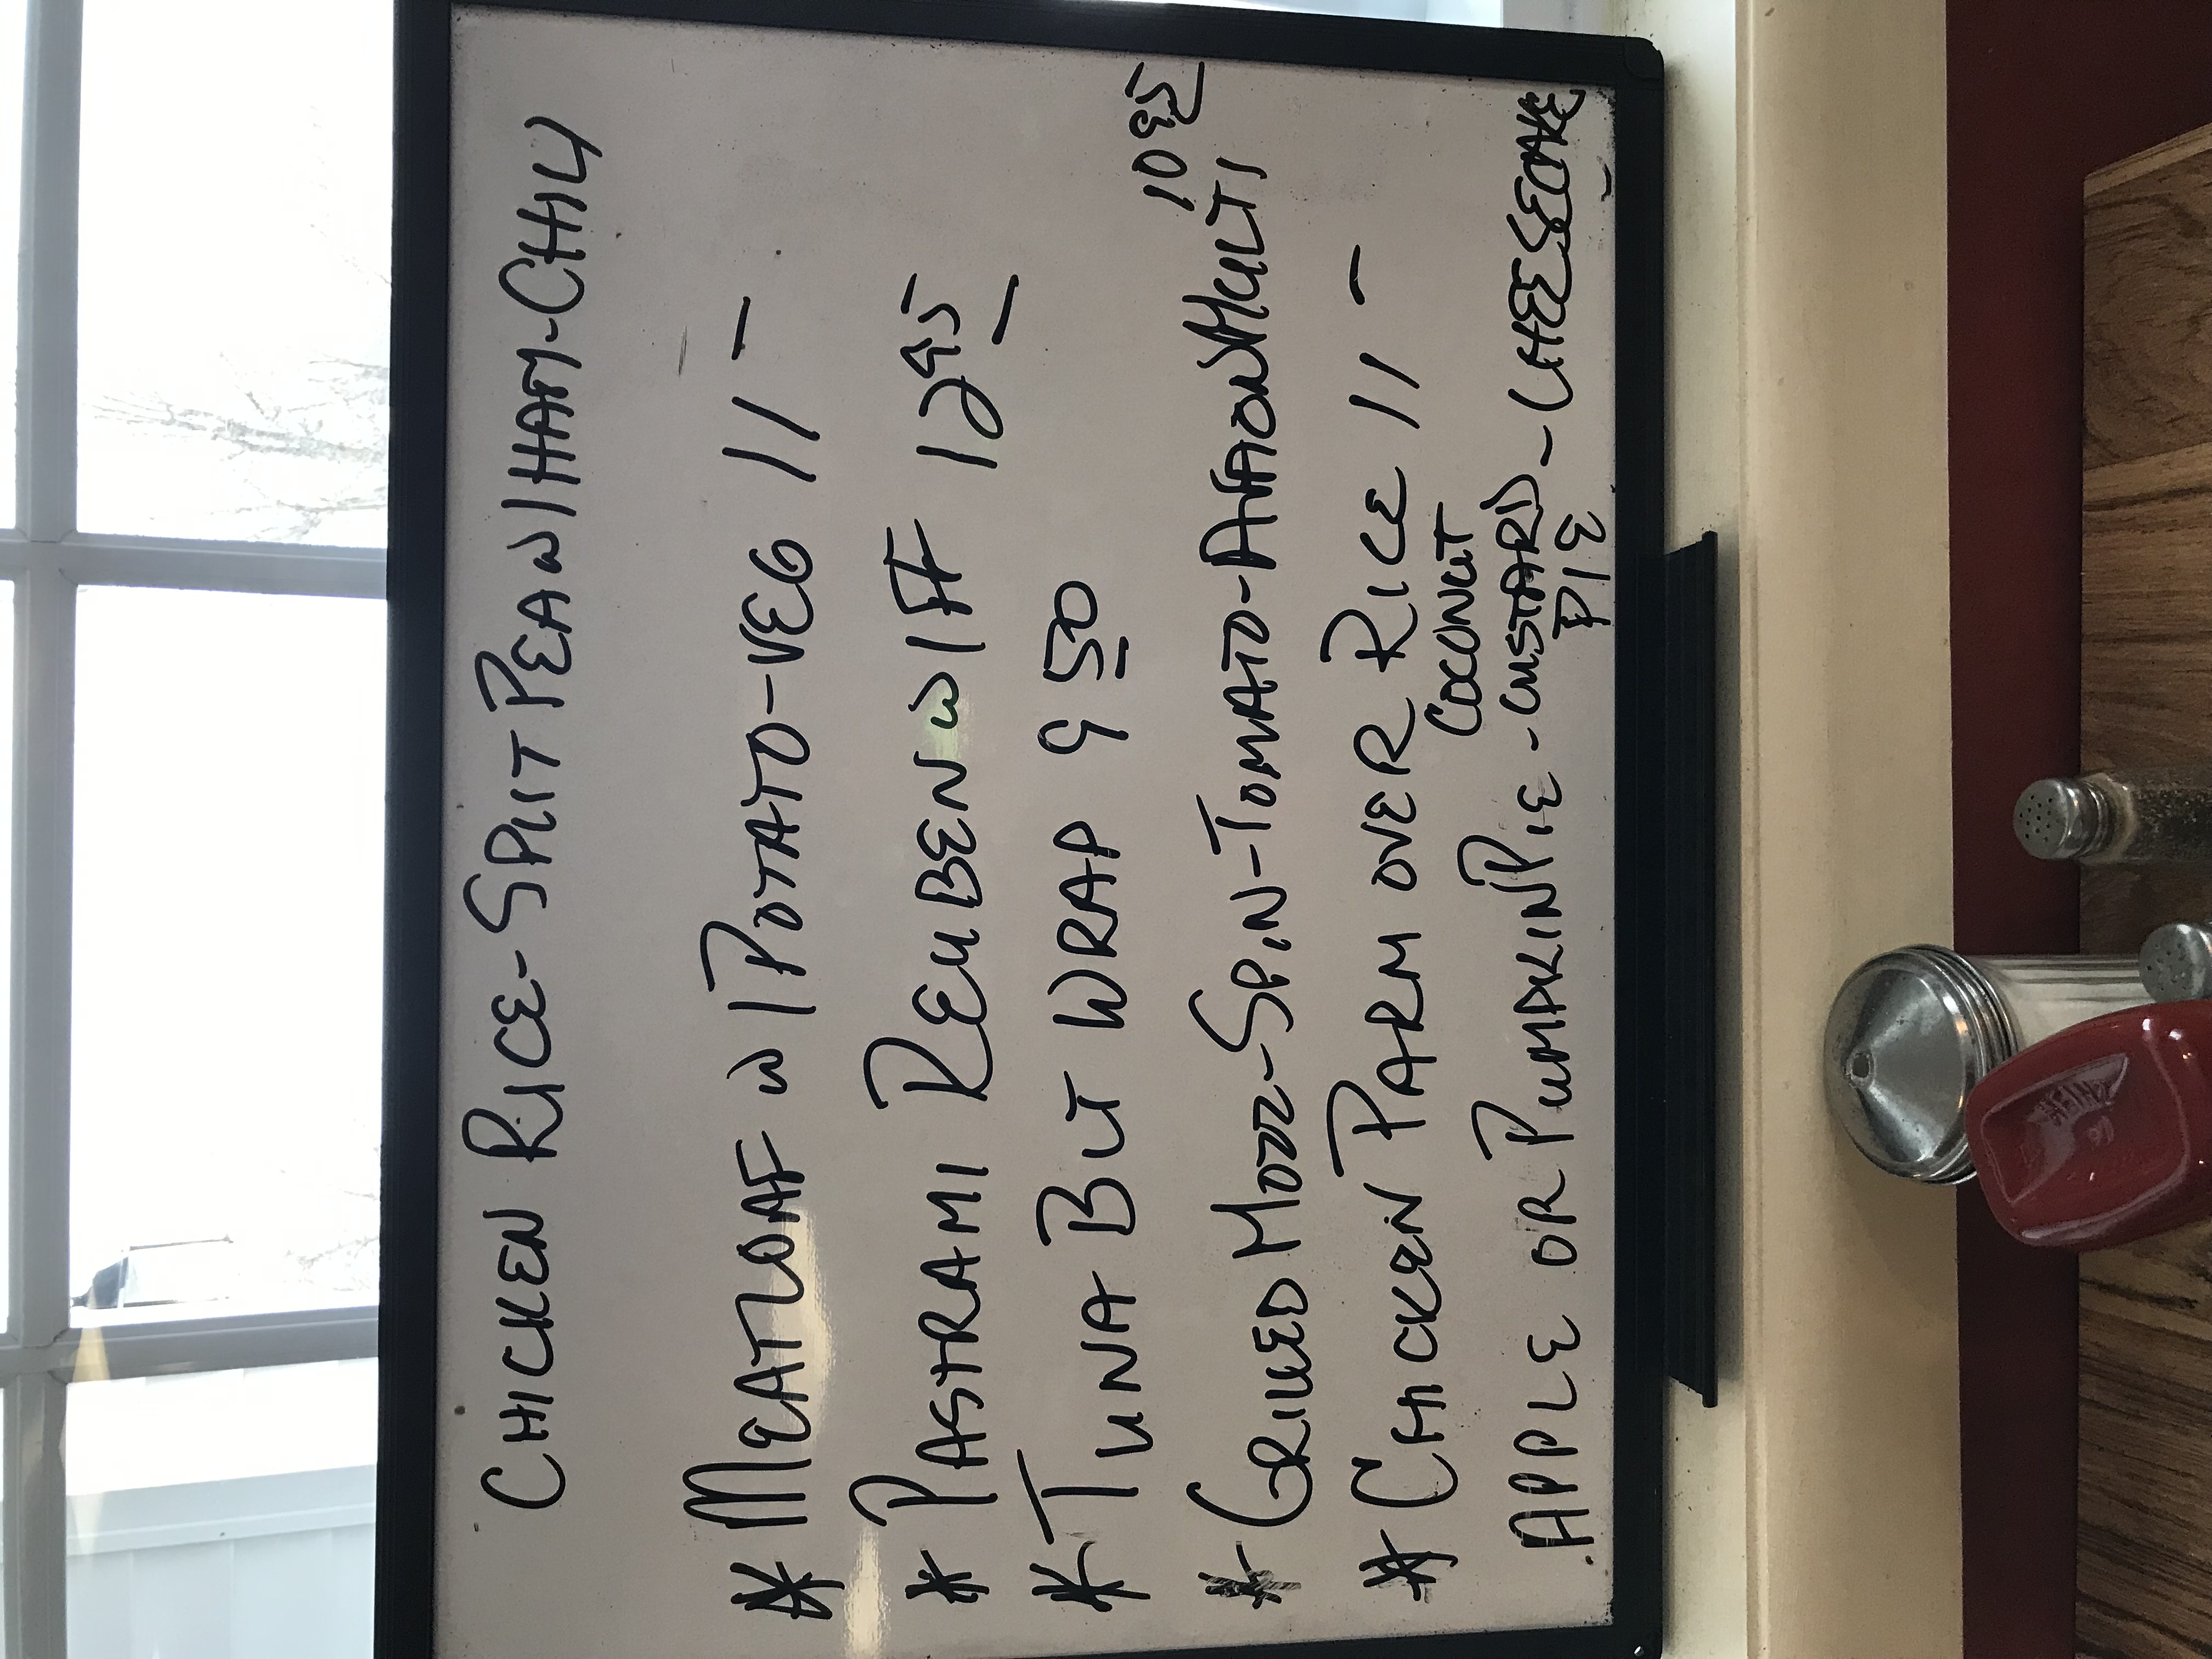 CHICKEN RICE - SPLIT PEA W/HAM - CHILI
* MEATLOAF W/POTATO - VEG 11 -
* PASTRAMI REUBEN W/FF 12 95
* TUNA BLT WRAP 9 50
10 95
* GRILLED MOZZ - SPIN - TOMATO - AVA ON MULTI
* CHICKEN PARM OVER RICE 11 -
COCONUT
APPLE OR PUMPKIN PIE - CUSTARD - CHEESECAKE
PIE